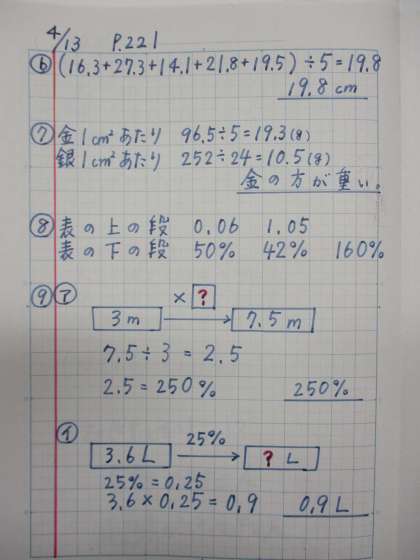 4/13 P.221
⑥ (16.3+27.3+14.1+21.8+19.5) ÷5=19.8
19.8 cm
⑦ 金1cm²あたり 96.5÷5=19.3(g)
銀1cm²あたり 252÷24=10.5(g)
金の方が重い。
⑧ 表の上の段 0.06 1.05
表の下の段 50% 42% 160%
⑨ ㋐ × ?
3m → 7.5m
7.5÷3=2.5
2.5=250% 250%
㋑ 25%
3.6L → ? L
25%=0.25
3.6×0.25=0.9 0.9L